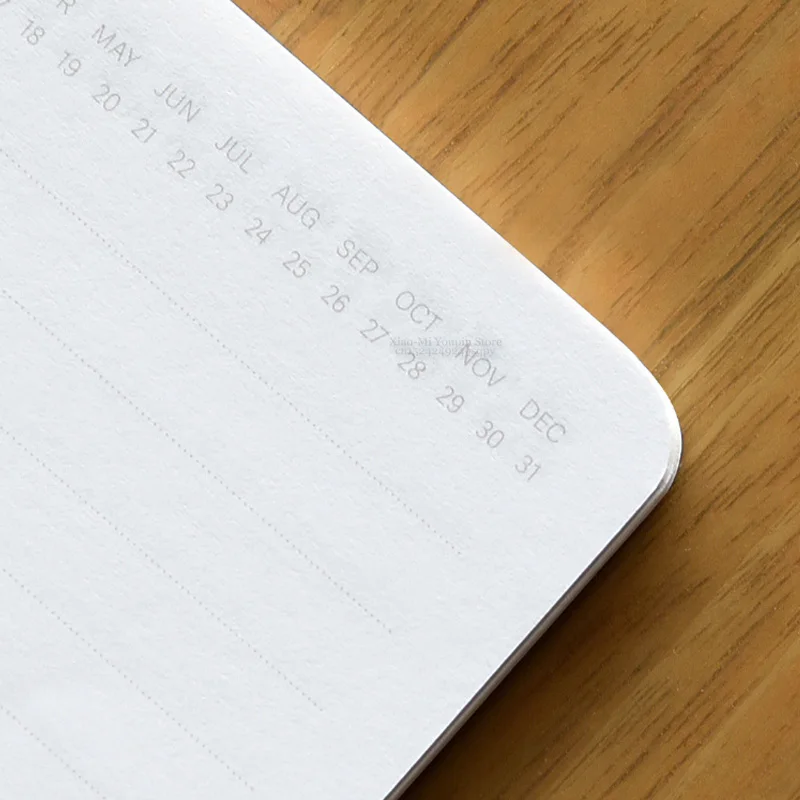 MAY JUN JUL AUG SEP OCT NOV DEC
18 19 20 21 22 23 24 25 26 27 28 29 30 31
Xiao-Mi Youpin Store